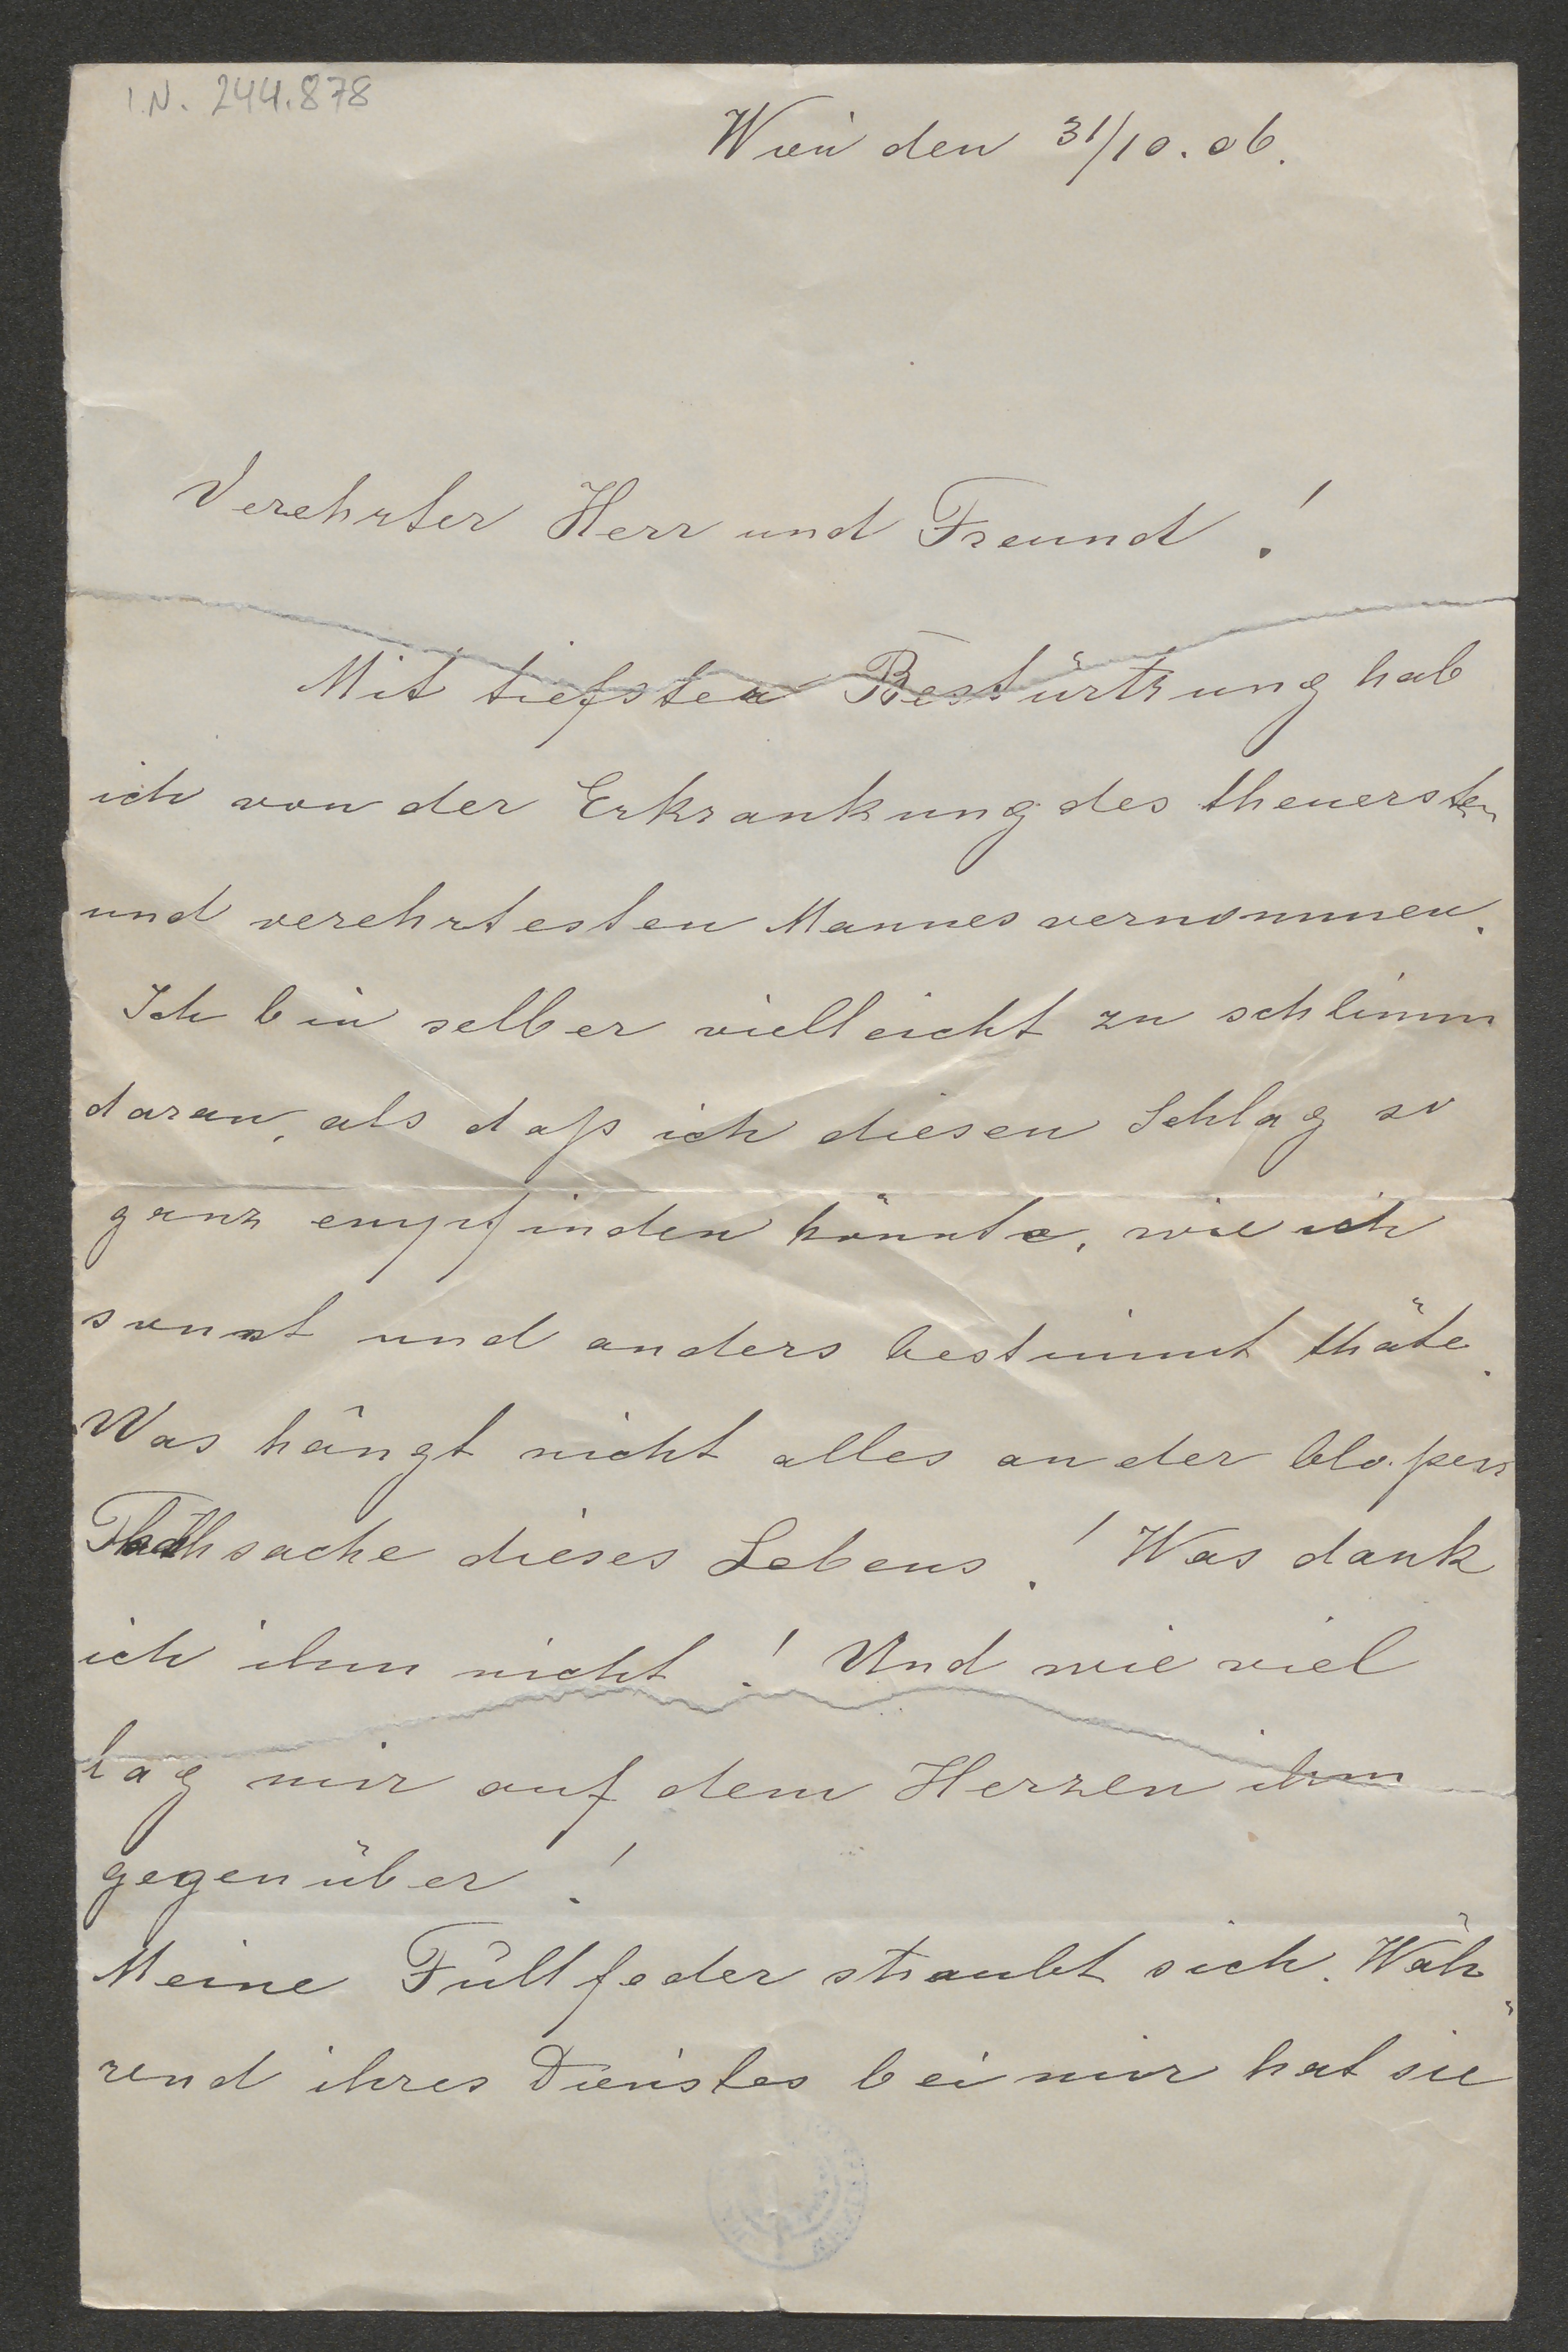 I.N. 244.878
Wien den 31/10.06.
Verehrter Herr und Freund!
Mit tiefster Bestürtzung hab
ich von der Erkrankung des theuersten
und verehrtesten Mannes vernommen.
Ich bin selber vielleicht zu schlimm
daran, als daß ich diesen Schlag so
ganz empfinden könnte, wie ich
sonst und anders bestimmt thäte.
Was hängt nicht alles an der bloßen
Thathsache dieses Lebens! Was dank
ich ihm nicht! Und wie viel
lag mir auf dem Herzen ihm
gegenüber!
Meine Füllfeder straubt sich. Wäh-
rend ihres Dienstes bei mir hat sie